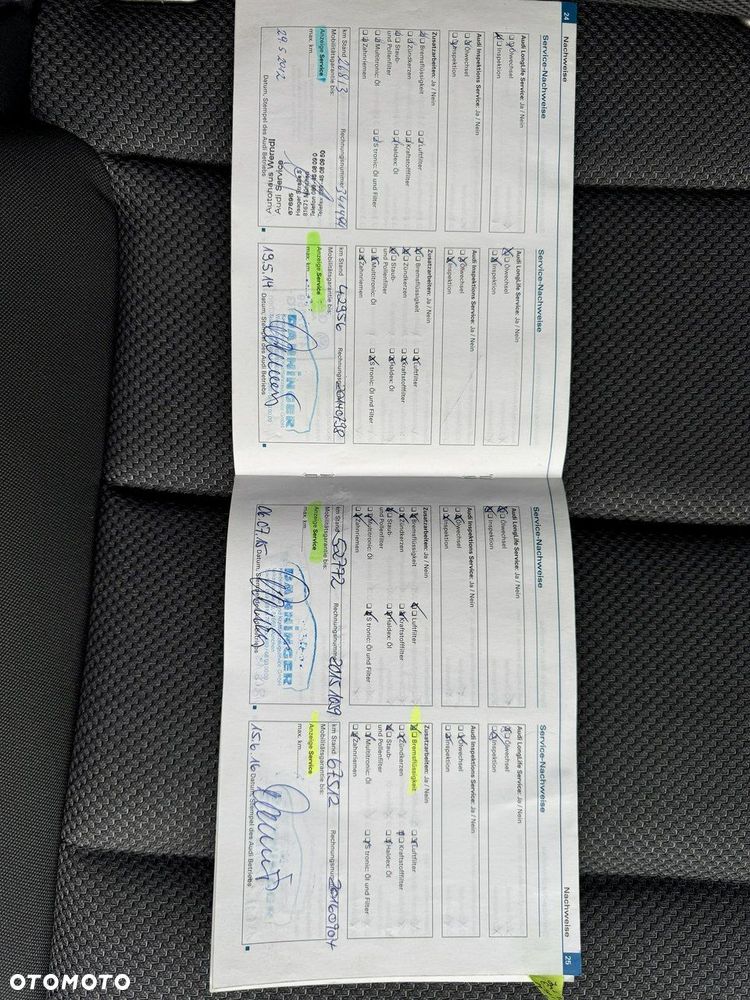 24 Nachweise
Service-Nachweise
Audi LongLife Service: Ja / Nein
Ölwechsel
Inspektion
Audi Inspektions Service: Ja / Nein
Ölwechsel
Inspektion
Zusatzarbeiten: Ja / Nein
Bremsflüssigkeit
Luftfilter
Zündkerzen
Kraftstofffilter
Staub-
und Pollenfilter
Haldex: Öl
Multitronic: Öl
S tronic: Öl und Filter
Zahnriemen
km Stand 26813
Rechnungsnummer 341490
Mobilitätsgarantie bis:
Anzeige Service
max. km.
29.5.2012
Autohaus Werndl
Audi Service
Datum, Stempel des Audi Betriebs
Service-Nachweise
Audi LongLife Service: Ja / Nein
Ölwechsel
Inspektion
Audi Inspektions Service: Ja / Nein
Ölwechsel
Inspektion
Zusatzarbeiten: Ja / Nein
Bremsflüssigkeit
Luftfilter
Zündkerzen
Kraftstofffilter
Staub-
und Pollenfilter
Haldex: Öl
Multitronic: Öl
S tronic: Öl und Filter
Zahnriemen
km Stand 42956
Mobilitätsgarantie bis:
Anzeige Service
max. km.
19.5.14
Datum, Stempel des Audi Betriebs
Nachweise 25
Service-Nachweise
Audi LongLife Service: Ja / Nein
Ölwechsel
Inspektion
Audi Inspektions Service: Ja / Nein
Ölwechsel
Inspektion
Zusatzarbeiten: Ja / Nein
Bremsflüssigkeit
Luftfilter
Zündkerzen
Kraftstofffilter
Staub-
und Pollenfilter
Haldex: Öl
Multitronic: Öl
S tronic: Öl und Filter
Zahnriemen
km Stand 52772
Rechnungsnummer 20151029
Mobilitätsgarantie bis:
Anzeige Service
max. km.
06.07.15
Service-Nachweise
Audi LongLife Service: Ja / Nein
Ölwechsel
Inspektion
Audi Inspektions Service: Ja / Nein
Ölwechsel
Inspektion
Zusatzarbeiten: Ja / Nein
Bremsflüssigkeit
Luftfilter
Zündkerzen
Kraftstofffilter
Staub-
und Pollenfilter
Haldex: Öl
Multitronic: Öl
S tronic: Öl und Filter
Zahnriemen
km Stand 67512
Rechnungsnummer 20160904
Mobilitätsgarantie bis:
Anzeige Service
max. km.
15.6.16
Datum, Stempel des Audi Betriebs
OTOMOTO